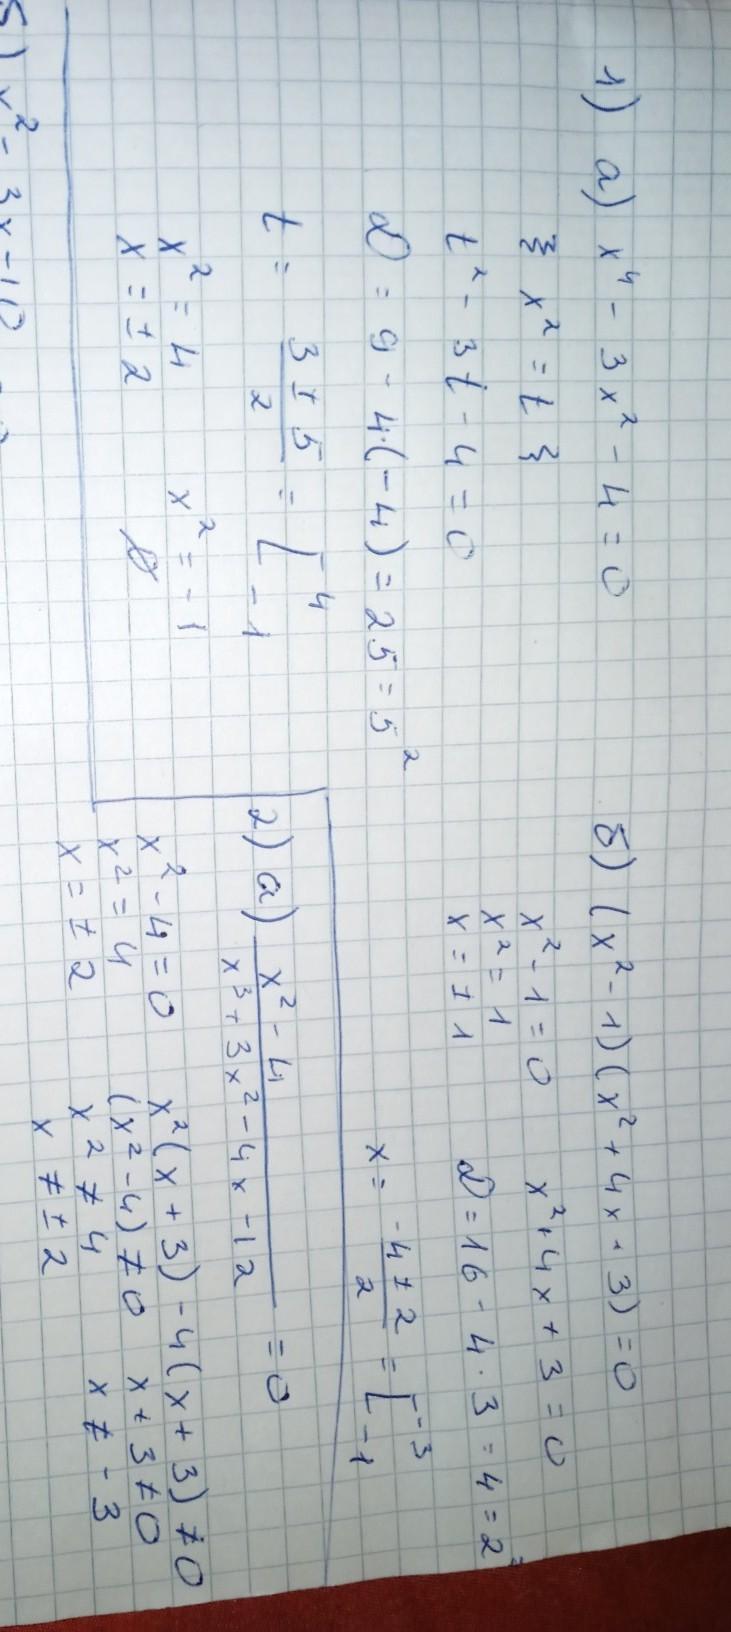 1) а) x⁴ - 3x² - 4 = 0
} x² = t }
t² - 3t - 4 = 0
D = 9 - 4·(-4) = 25 = 5²
t = (3 ± 5)/2 = [ 4
-1
x² = 4
x = ± 2
x² = -1
∅
б) (x² - 1)(x² + 4x + 3) = 0
x² - 1 = 0
x² = 1
x = ± 1
x² + 4x + 3 = 0
D = 16 - 4 · 3 = 4 = 2²
x = (-4 ± 2)/2 = [ -3
-1
2) а) (x² - 4)/(x³ + 3x² - 4x - 12) = 0
x² - 4 = 0
x² = 4
x = ± 2
x²(x + 3) - 4(x + 3) ≠ 0
(x² - 4) ≠ 0
x + 3 ≠ 0
x² ≠ 4
x ≠ - 3
x ≠ ± 2
б) x² - 3x - 10